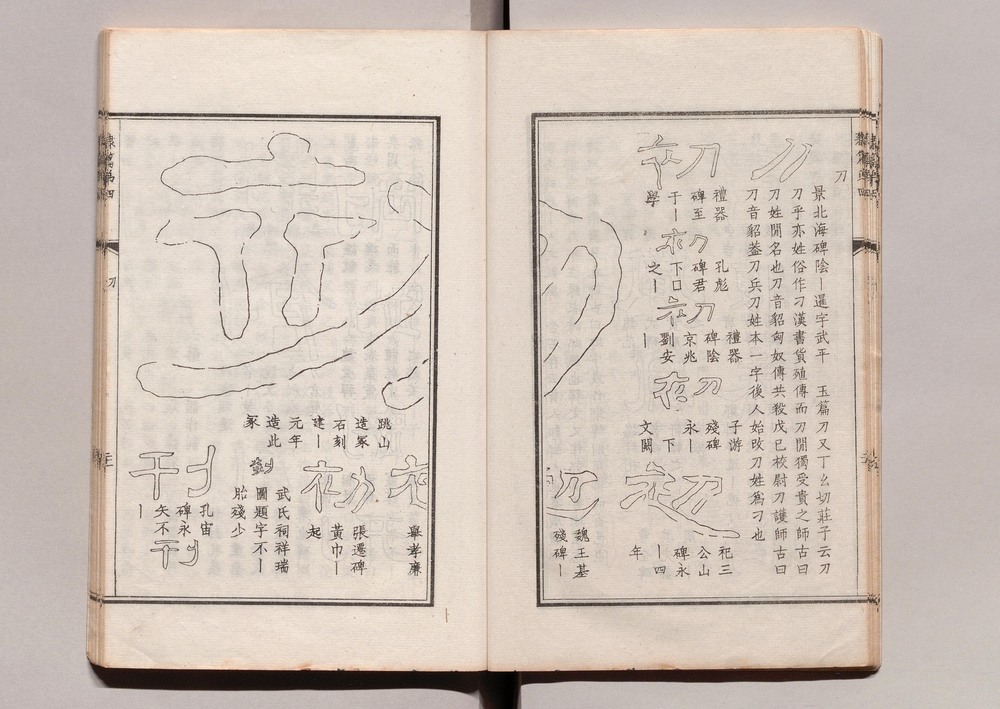 刀
刀
景北海碑陰丨暹字武平　玉篇刀又丁幺切莊子云刀
刀乎亦姓俗作刁漢書貨殖傳而刀閒獨受貴之師古曰
刀姓閒名也刀音貂匈奴傳共殺戊己校尉刀護師古曰
刀音貂葢刀兵刀姓本一字後人始改刀姓爲刁也
初
禮器
碑至
于丨
學
初
孔彪
碑君
下口
之丨
初
禮器
碑陰
京兆
劉安
丨
初
子游
殘碑
永丨
下
文闕
初
祀三
公山
碑永
丨四
年
初
魏王基
殘碑丨
初
舉孝廉
初
跳山
造冢
石刻
建丨
元年
造此
冢
初
張遷碑
黃巾丨
起
武氏祠祥瑞
圖題字不丨
胎殘少
刊
孔宙
碑永
矢不
丨
刊
刀